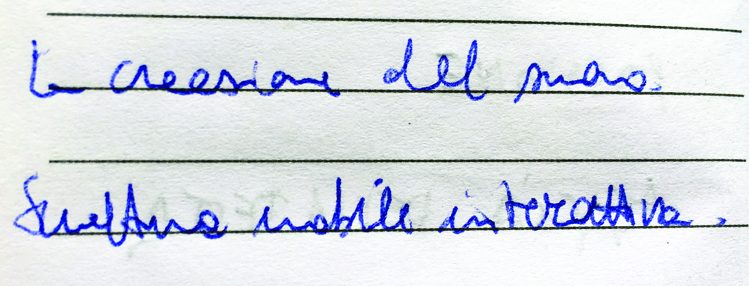 La creazione del suono.
Scultura mobile interattiva.